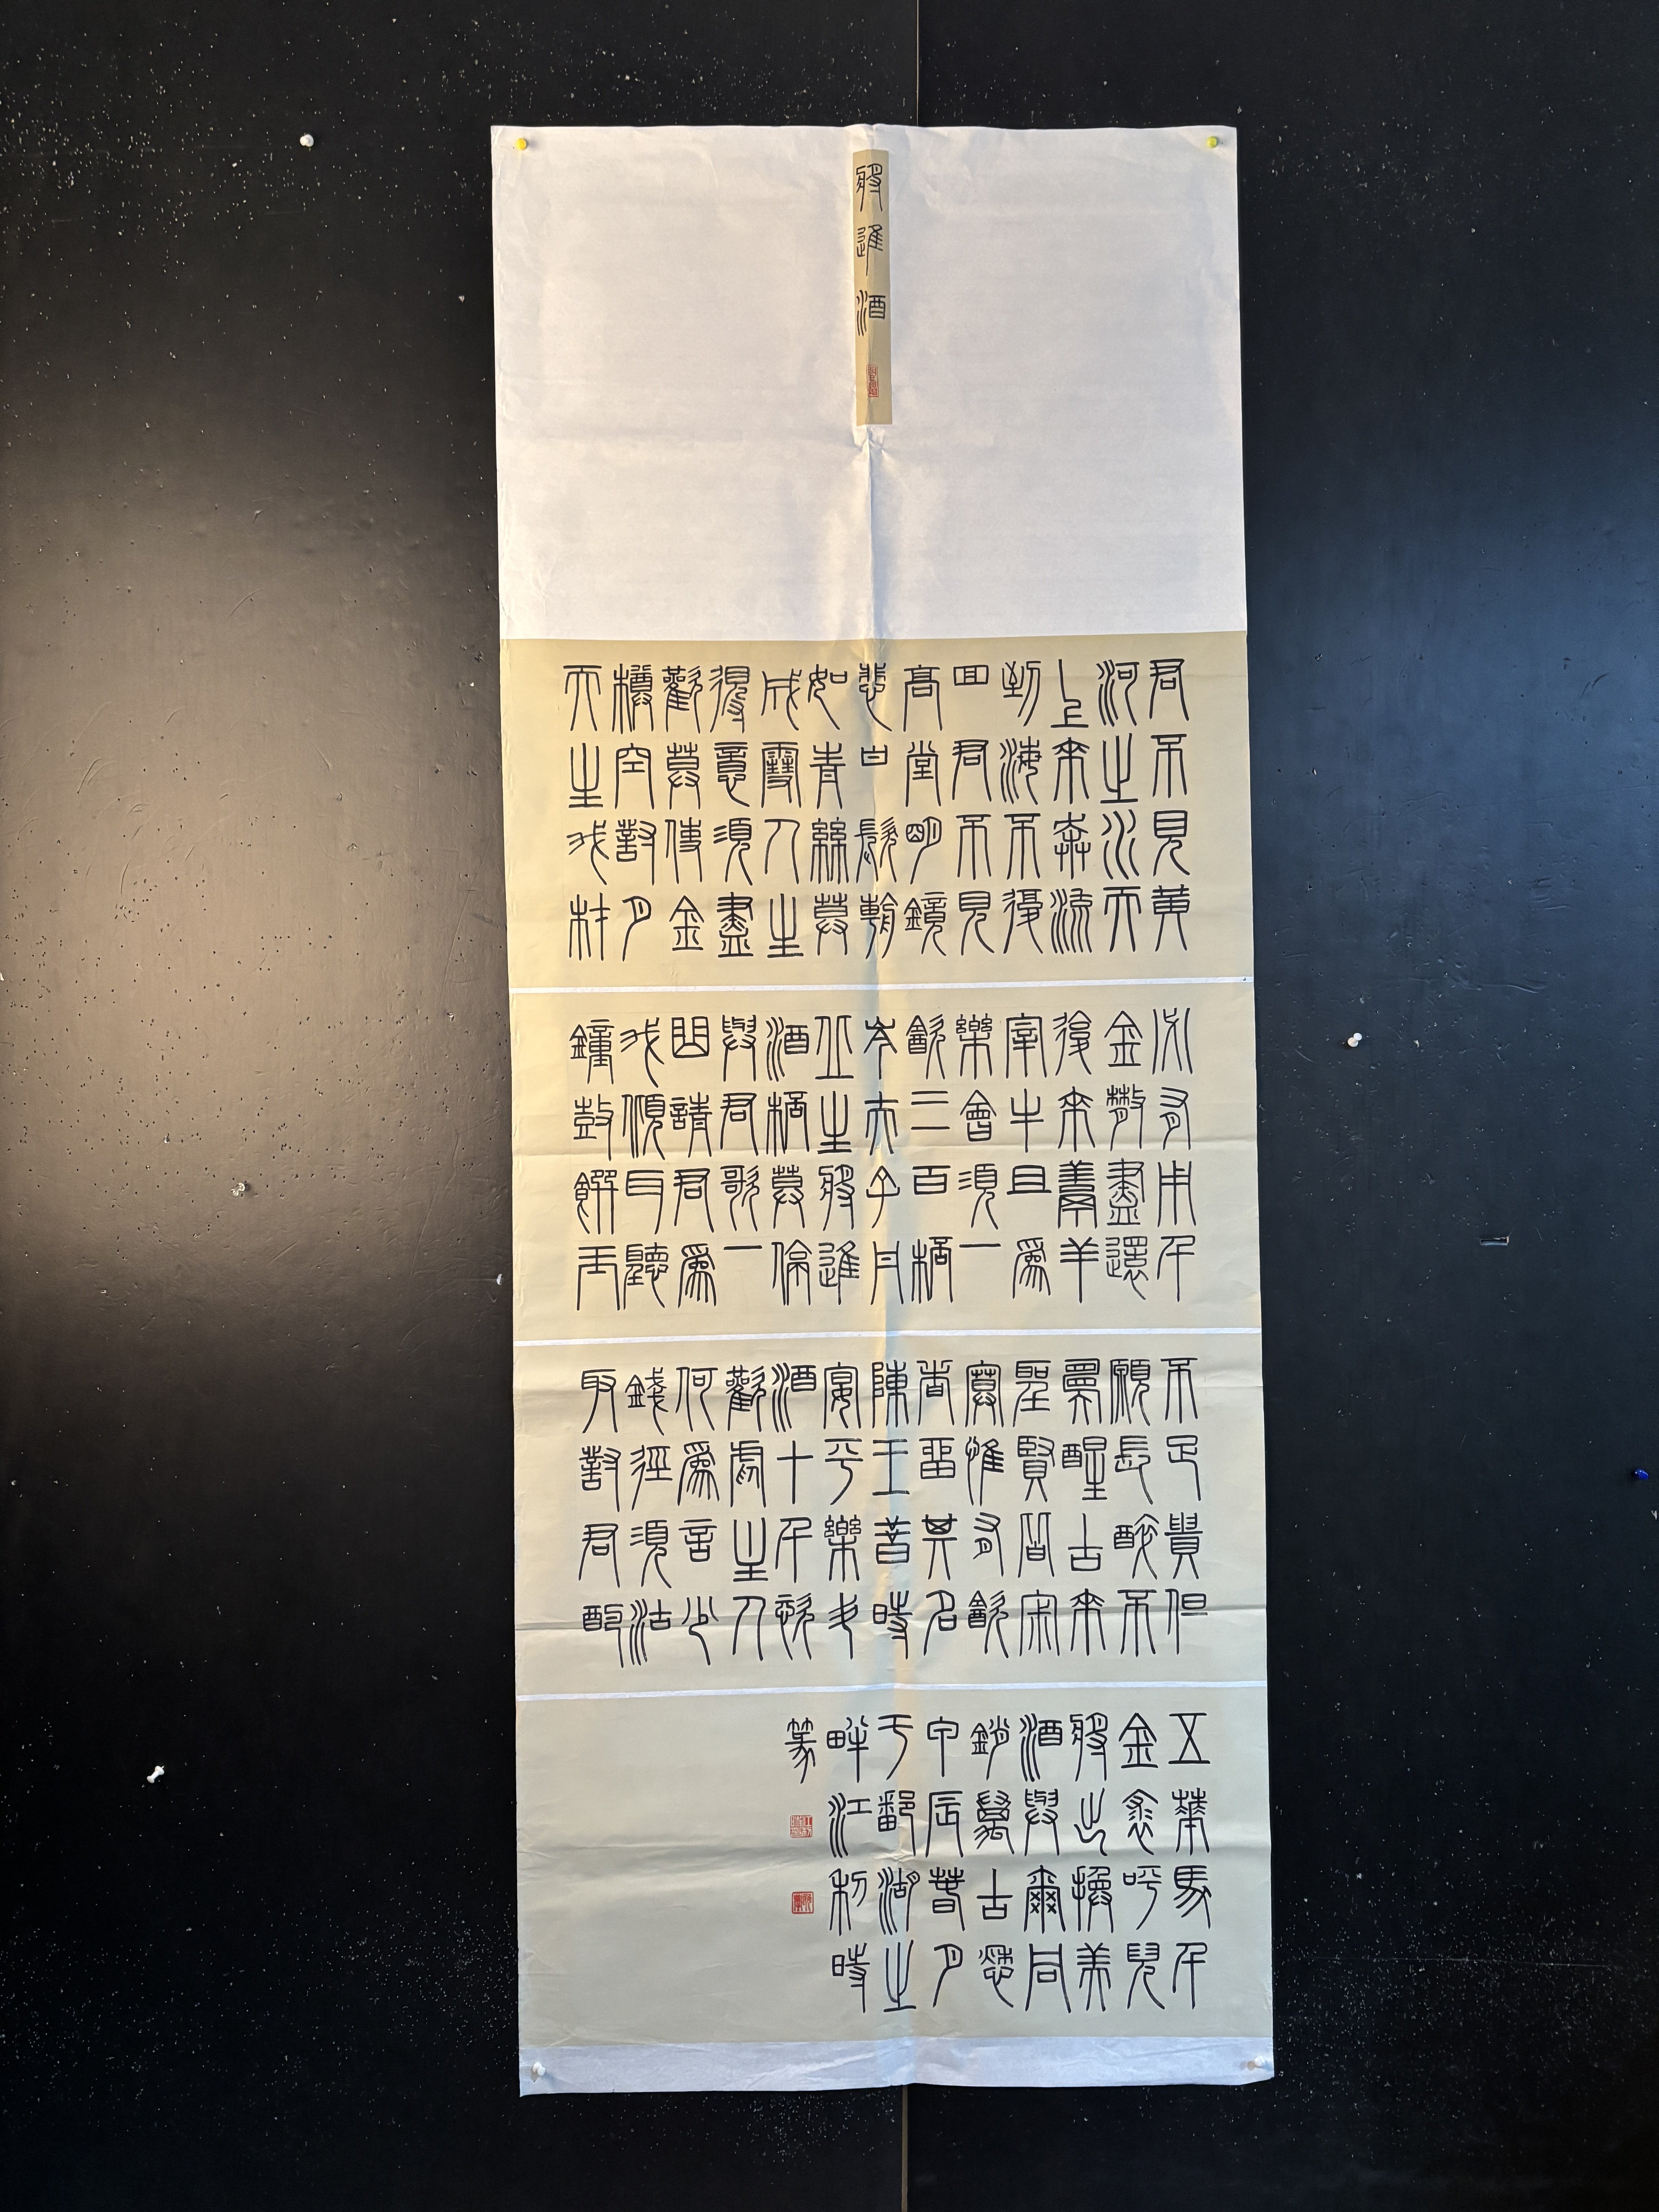 將進酒
君不見黃
河之水天
上來奔流
到海不復
回君不見
高堂明鏡
悲白髮朝
如青絲莫
成雪人生
得意須盡
歡莫使金
樽空對月
天生我材
必有用千
金散盡還
復來羹羊
宰牛且為
樂會須一
飲三百桮
岑夫子丹
丘生將進
酒桮莫停
與君歌一
曲請君為
我傾耳聽
鐘鼓饌玉
不足貴但
願長醉不
願醒古來
聖賢皆寂
寞惟有飲
者留其名
陳王昔時
宴平樂斗
酒十千恣
歡謔主人
何為言少
錢徑須沽
取對君酌
五華馬千
金裘呼兒
將出換美
酒與爾同
銷萬古愁
甲辰春月
于鄱湖之
畔江利時
篆